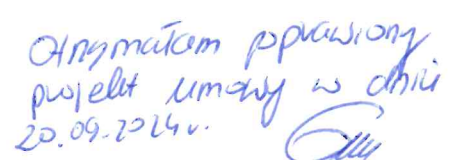 Otrzymałam poprawiony
projekt umowy w dniu
20.09.2024r.